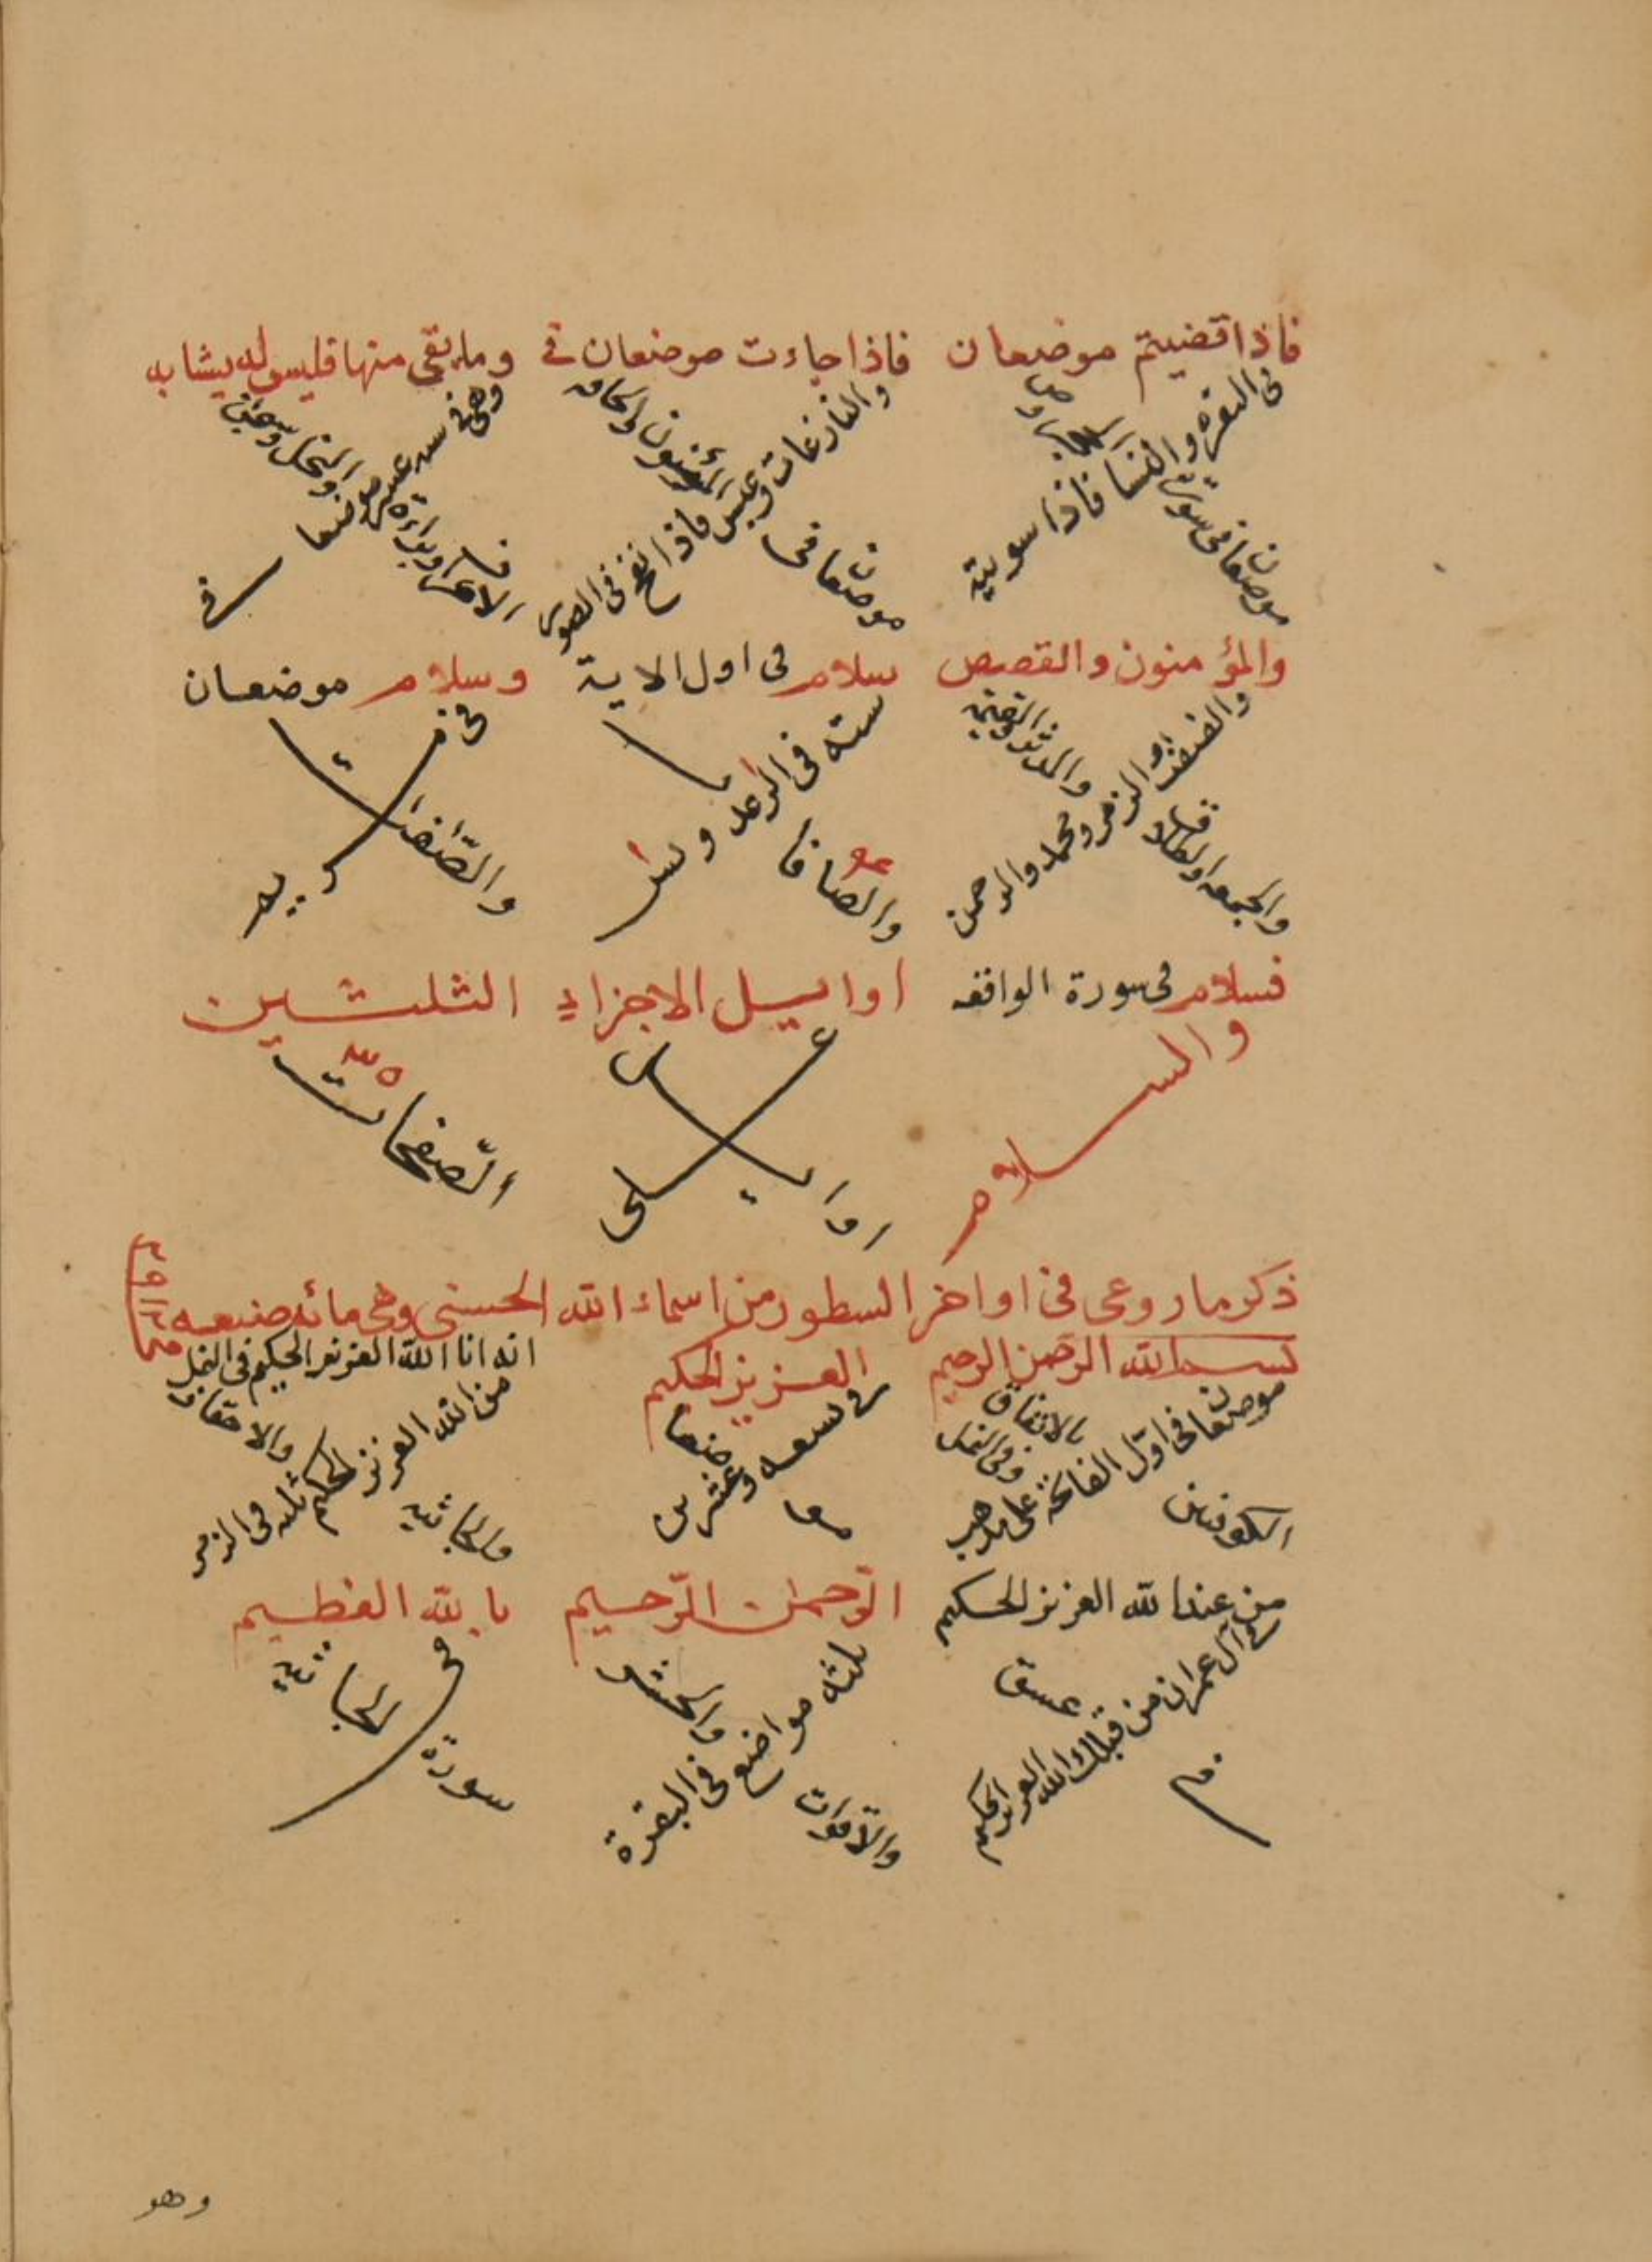 فاذا قضيتم موضعان
في البقره والنسا فاذا سويته
موضعان في سورة الحجر وص
فاذا جاءت موضعان في
والنازعات وعبس فاذا نفخ في الصور
موضعان في المؤمنون والحاقه
وما بقى منها فليس له يشابه
وهي في سته عشر موضعا في
الانعام وبراءة والنحل وسبحن
والمؤمنون والقصص
والصفت والزمر ومحمد والرحمن
والجمعه والطلاق والمدثر والقيمة
سلام في اول الاية
سته في الرعد ويس
والصافات
وسلام موضعان
في مريم
والصافات
فسلام في سورة الواقعه
والسلام
اوايل الاجزاء الثلثين
على
اوايل
الصفحات
ذكر ما روعى في اواخر السطور من اسماء الله الحسنى وهي مائه
بسم الله الرحمن الرحيم
موضعان في اول الفاتحه على مذهب
الكوفيين وفي النمل بالاتفاق
العزيز الحكيم
في تسعه وعشرين
موضعا
انه انا الله العزيز الحكيم في النمل
من الله العزيز الحكيم ثلثه في الزمر
والجاثيه والاحقاف
من عند الله العزيز الحكيم
في آل عمران من قبلك الله العزيز الحكيم
في عسق
الرحمن الرحيم
ثلثه مواضع في البقرة
والحشر
بالله العظيم
في
سورة الجاثيه
وهو